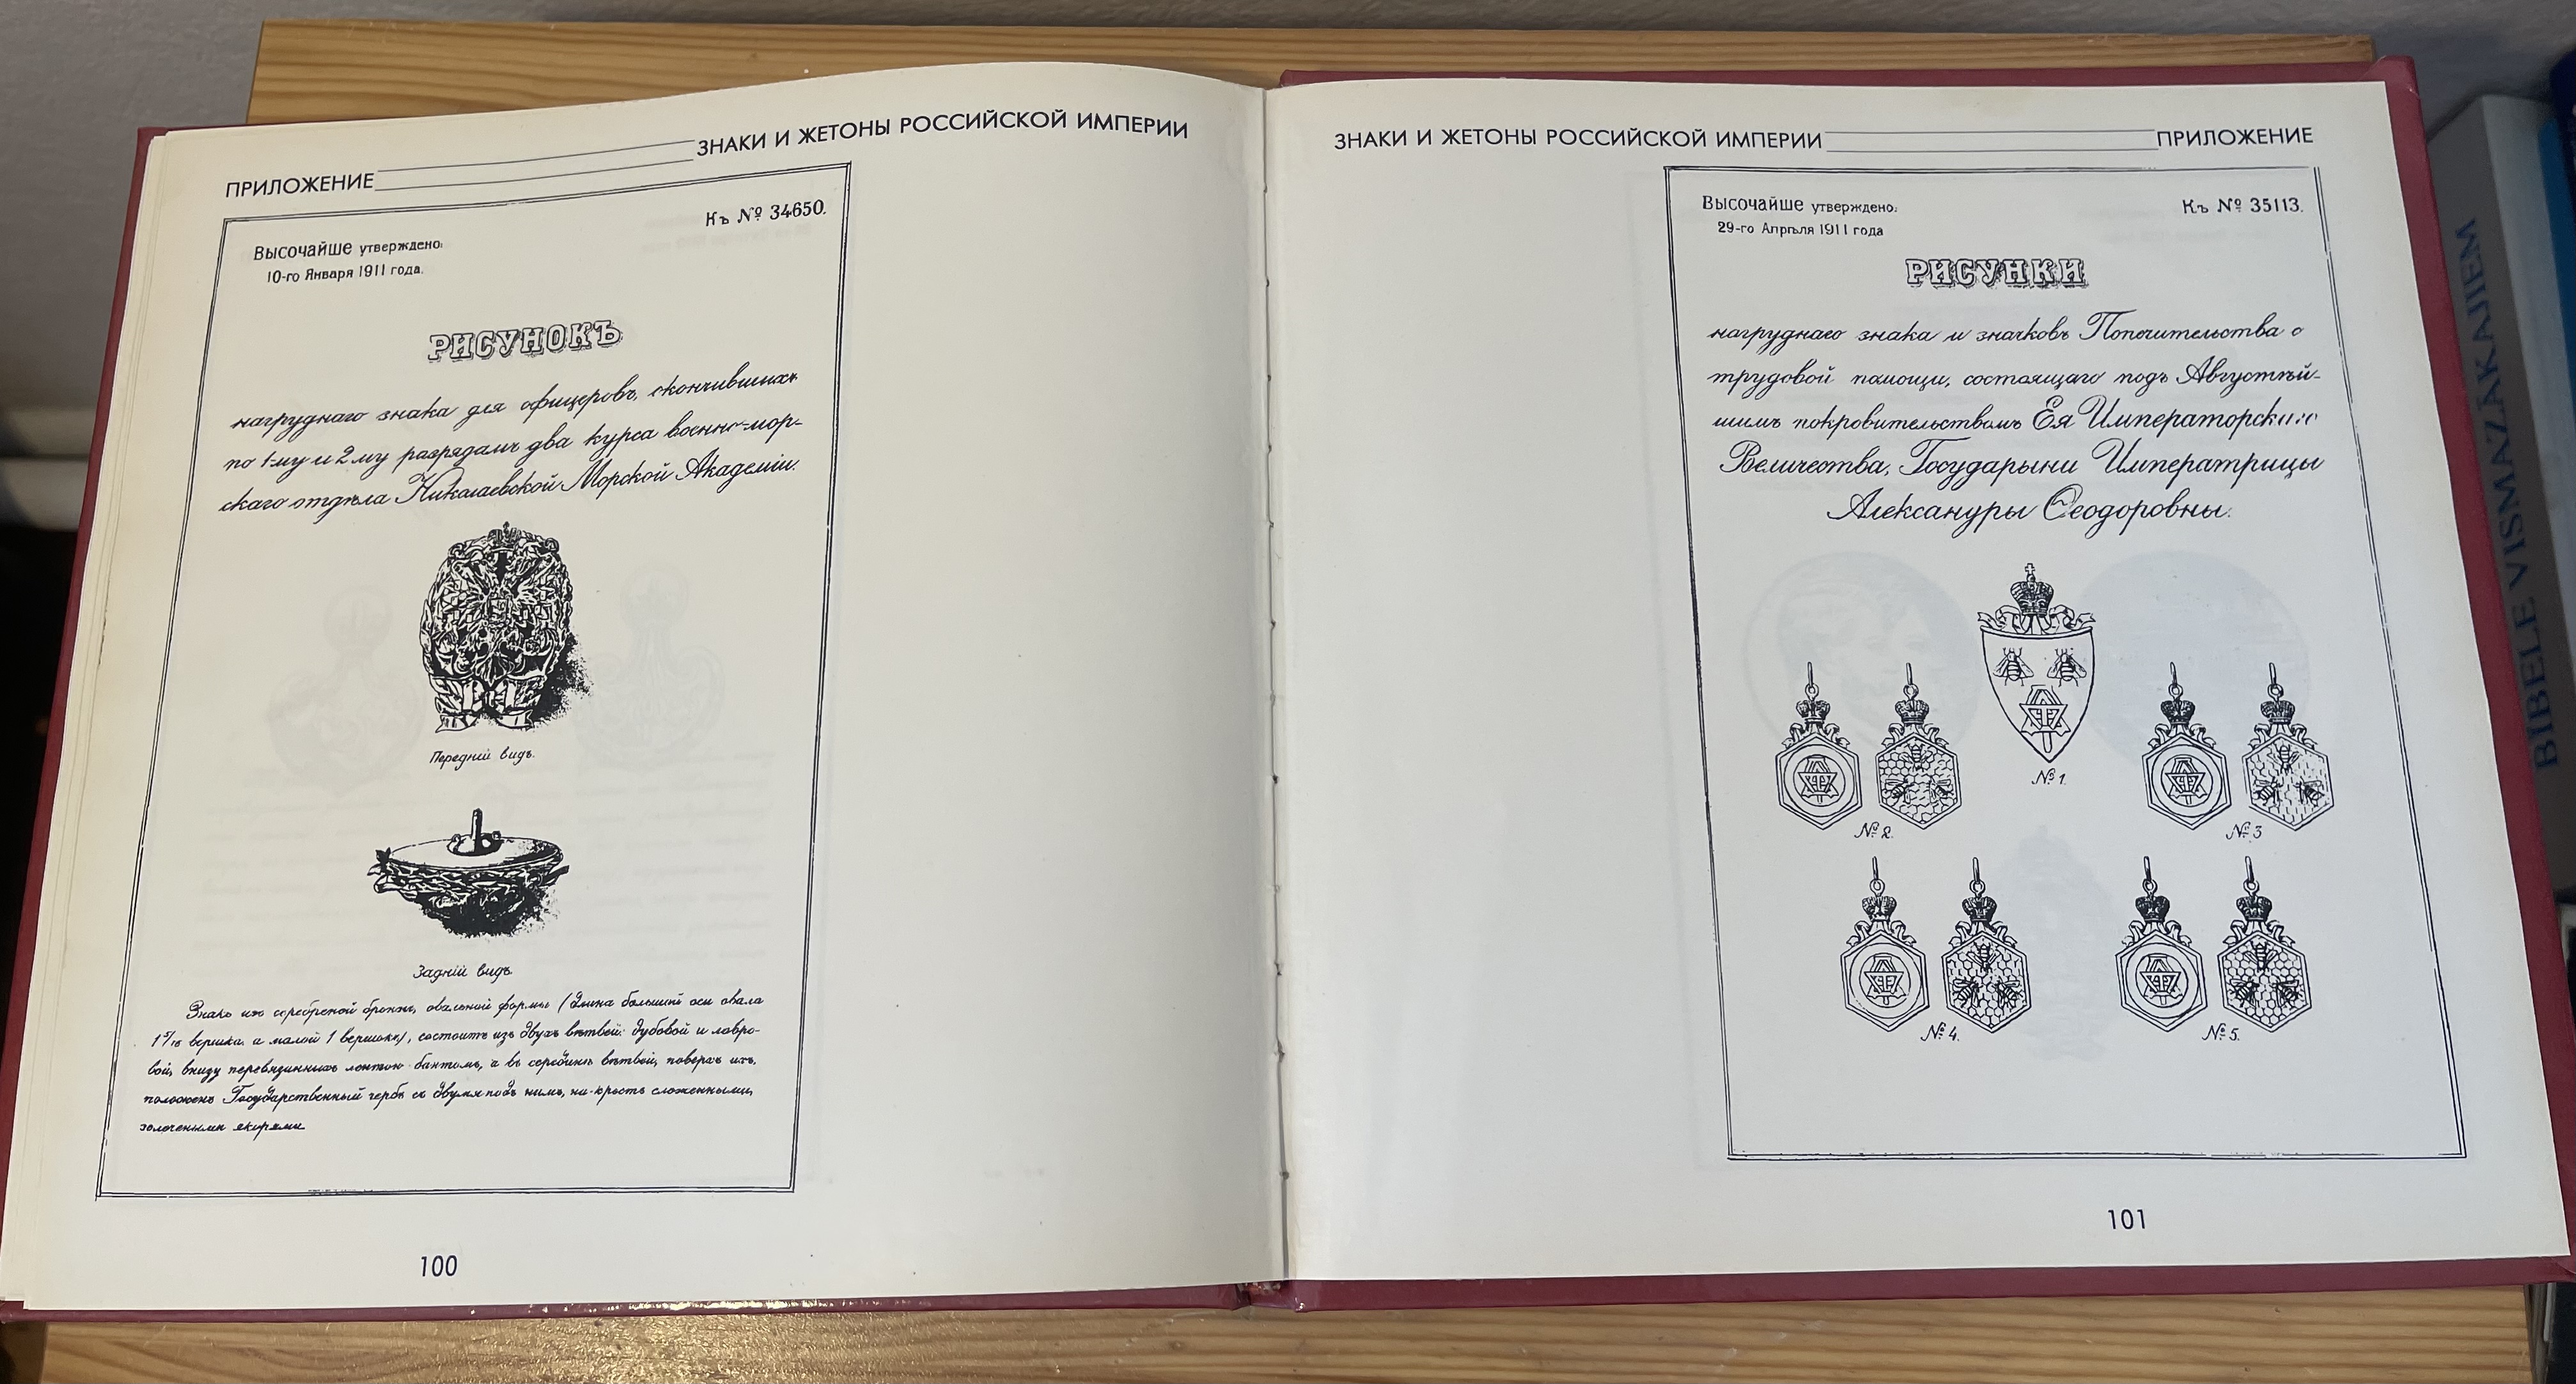 ПРИЛОЖЕНИЕ ЗНАКИ И ЖЕТОНЫ РОССИЙСКОЙ ИМПЕРИИ
Къ № 34650.
Высочайше утверждено:
10-го Января 1911 года.
РИСУНОКЪ
нагруднаго знака для офицеровъ, окончившихъ
по 1-му и 2 му разрядамъ два курса военно-мор-
скаго отдѣла Николаевской Морской Академіи.
Передній видъ.
Задній видъ.
Знакъ изъ серебреной бронзы, овальной формы (длина большой оси овала
1 5/16 вершка, а малой 1 вершокъ), состоитъ изъ двухъ вѣтвей: дубовой и лавро-
вой, внизу перевязанныхъ лентою-бантомъ, а въ серединѣ вѣтвей, поверхъ ихъ,
положенъ Государственный гербъ съ двумя подъ нимъ, на-крестъ сложенными,
золочеными якорями
100
ЗНАКИ И ЖЕТОНЫ РОССИЙСКОЙ ИМПЕРИИ ПРИЛОЖЕНИЕ
Высочайше утверждено:
Къ № 35113.
29-го Апрѣля 1911 года
РИСУНКИ
нагруднаго знака и значковъ Попечительства о
трудовой помощи, состоящаго подъ Августѣй-
шимъ покровительствомъ Ея Императорскаго
Величества, Государыни Императрицы
Александры Ѳеодоровны.
№ 1.
№ 2.
№ 3
№ 4.
№ 5.
101
BIBELE VISMAZĀKAJIEM